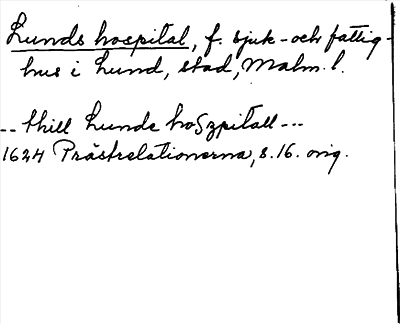 Lunds hospital, f. sjuk- och fattig-
hus i Lund, stad, Malm. l.
-- thill Lunde hoSzpitall ---
1624 Prästrelationerna, s. 16. orig.